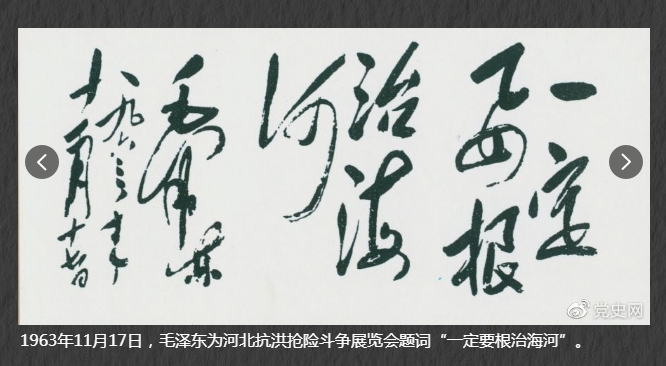 一定
要根
治海
河
毛泽东
一九六三年
十一月十七日
党史网
1963年11月17日，毛泽东为河北抗洪抢险斗争展览会题词“一定要根治海河”。